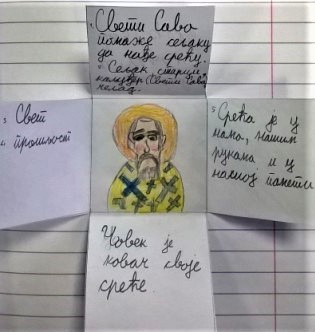 1. Свети Сава
помаже сељаку
да нађе срећу.
2. Сељак, старији
калуђер (Свети Сава)
3. Свет
4. прошлост
5. Срећа је у
нама, нашим
рукама и у
нашој памети
Човек је
ковач своје
среће.